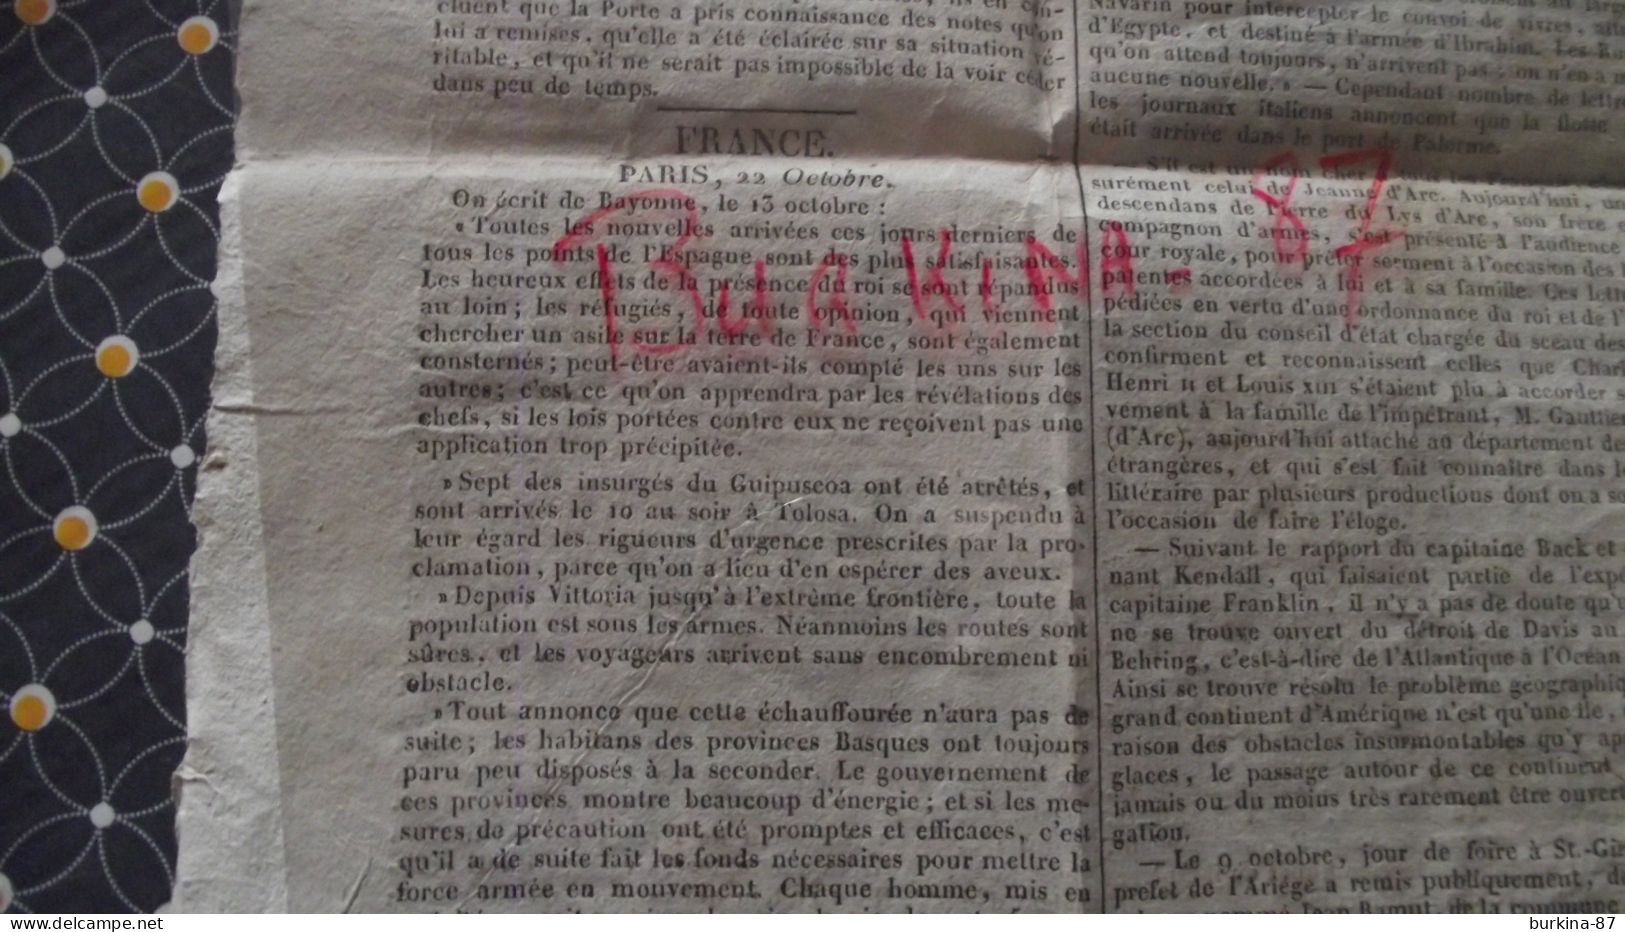 cluent que la Porte a pris connaissance des notes qu'on
lui a remises, qu'elle a été éclairée sur sa situation vé-
ritable, et qu'il ne serait pas impossible de la voir céder
dans peu de temps.
FRANCE.
PARIS, 22 Octobre.
On écrit de Bayonne, le 13 octobre :
« Toutes les nouvelles arrivées ces jours derniers de
tous les points de l'Espagne sont des plus satisfaisantes.
Les heureux effets de la présence du roi se sont répandus
au loin; les réfugiés, de toute opinion, qui viennent
chercher un asile sur la terre de France, sont également
consternés; peut-être avaient-ils compté les uns sur les
autres; c'est ce qu'on apprendra par les révélations des
chefs, si les lois portées contre eux ne reçoivent pas une
application trop précipitée.
» Sept des insurgés du Guipuscoa ont été arrêtés, et
sont arrivés le 10 au soir à Tolosa. On a suspendu à
leur égard les rigueurs d'urgence prescrites par la pro-
clamation, parce qu'on a lieu d'en espérer des aveux.
» Depuis Vittoria jusqu'à l'extrême frontière, toute la
population est sous les armes. Néanmoins les routes sont
sûres, et les voyageurs arrivent sans encombrement ni
obstacle.
» Tout annonce que cette échauffourée n'aura pas de
suite; les habitans des provinces Basques ont toujours
paru peu disposés à la seconder. Le gouvernement de
ces provinces montre beaucoup d'énergie; et si les me-
sures de précaution ont été promptes et efficaces, c'est
qu'il a de suite fait les fonds nécessaires pour mettre la
force armée en mouvement. Chaque homme, mis en
Navarin pour intercepter le convoi de vivres,
d'Egypte, et destiné à l'armée d'Ibrahim. Les
qu'on attend toujours, n'arrivent pas; on n'en a
aucune nouvelle. » — Cependant nombre de
les journaux italiens annoncent que la flotte
était arrivée dans le port de Palerme.
— S'il est un nom cher
surément celui de Jeanne d'Arc. Aujourd'hui, un
descendans de Pierre du Lys d'Arc, son frère
compagnon d'armes, s'est présenté à l'audience
cour royale, pour prêter serment à l'occasion des
patentes accordées à lui et à sa famille. Ces
pédiées en vertu d'une ordonnance du roi et de
la section du conseil d'état chargée du sceau des
confirment et reconnaissent celles que
Henri II et Louis XIII s'étaient plu à accorder
vement à la famille de l'impétrant, M.
(d'Arc), aujourd'hui attaché au département de
étrangères, et qui s'est fait connaître dans
littéraire par plusieurs productions dont on a
l'occasion de faire l'éloge.
— Suivant le rapport du capitaine Back et
nant Kendall, qui faisaient partie de
capitaine Franklin, il n'y a pas de doute
ne se trouve ouvert du détroit de Davis au
Behring, c'est-à-dire de l'Atlantique à l'Océan
Ainsi se trouve résolu le problème
grand continent d'Amérique n'est qu'une île,
raison des obstacles insurmontables qu'y
glaces, le passage autour de ce continent
jamais ou du moins très rarement être
gation.
— Le 9 octobre, jour de foire à
préfet de l'Ariége a remis publiquement,
de la commune
Burkina 87
burkina-87